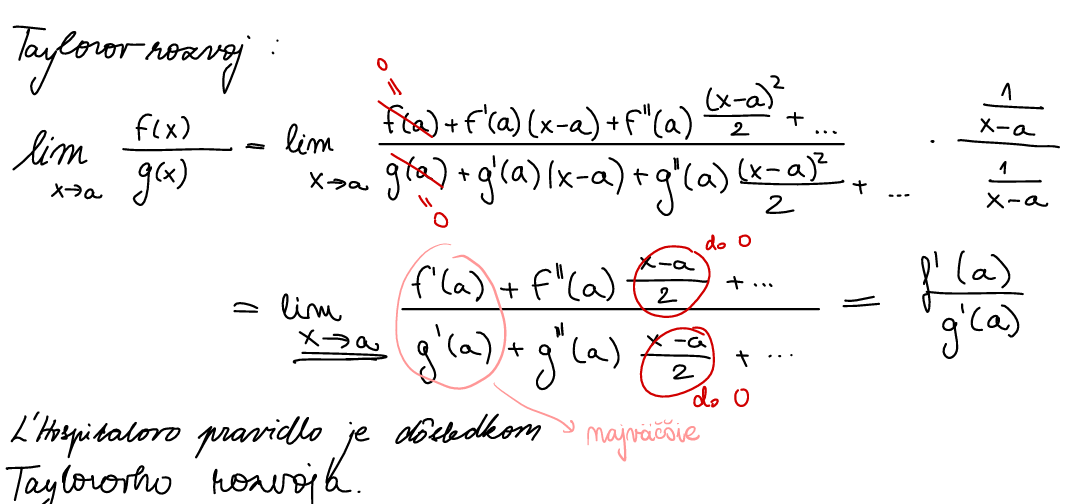 Taylorov rozvoj :
lim x→a f(x)/g(x) = lim x→a (f(a) + f'(a)(x-a) + f''(a) (x-a)²/2 + ...)/(g(a) + g'(a)(x-a) + g''(a) (x-a)²/2 + ...) · (1/(x-a))/(1/(x-a))
0 =
= 0
do 0
= lim x→a (f'(a) + f''(a) (x-a)/2 + ...)/(g'(a) + g''(a) (x-a)/2 + ...) = f'(a)/g'(a)
do 0
najväčšie
L'Hospitalovo pravidlo je dôsledkom
Taylorovho rozvoja.